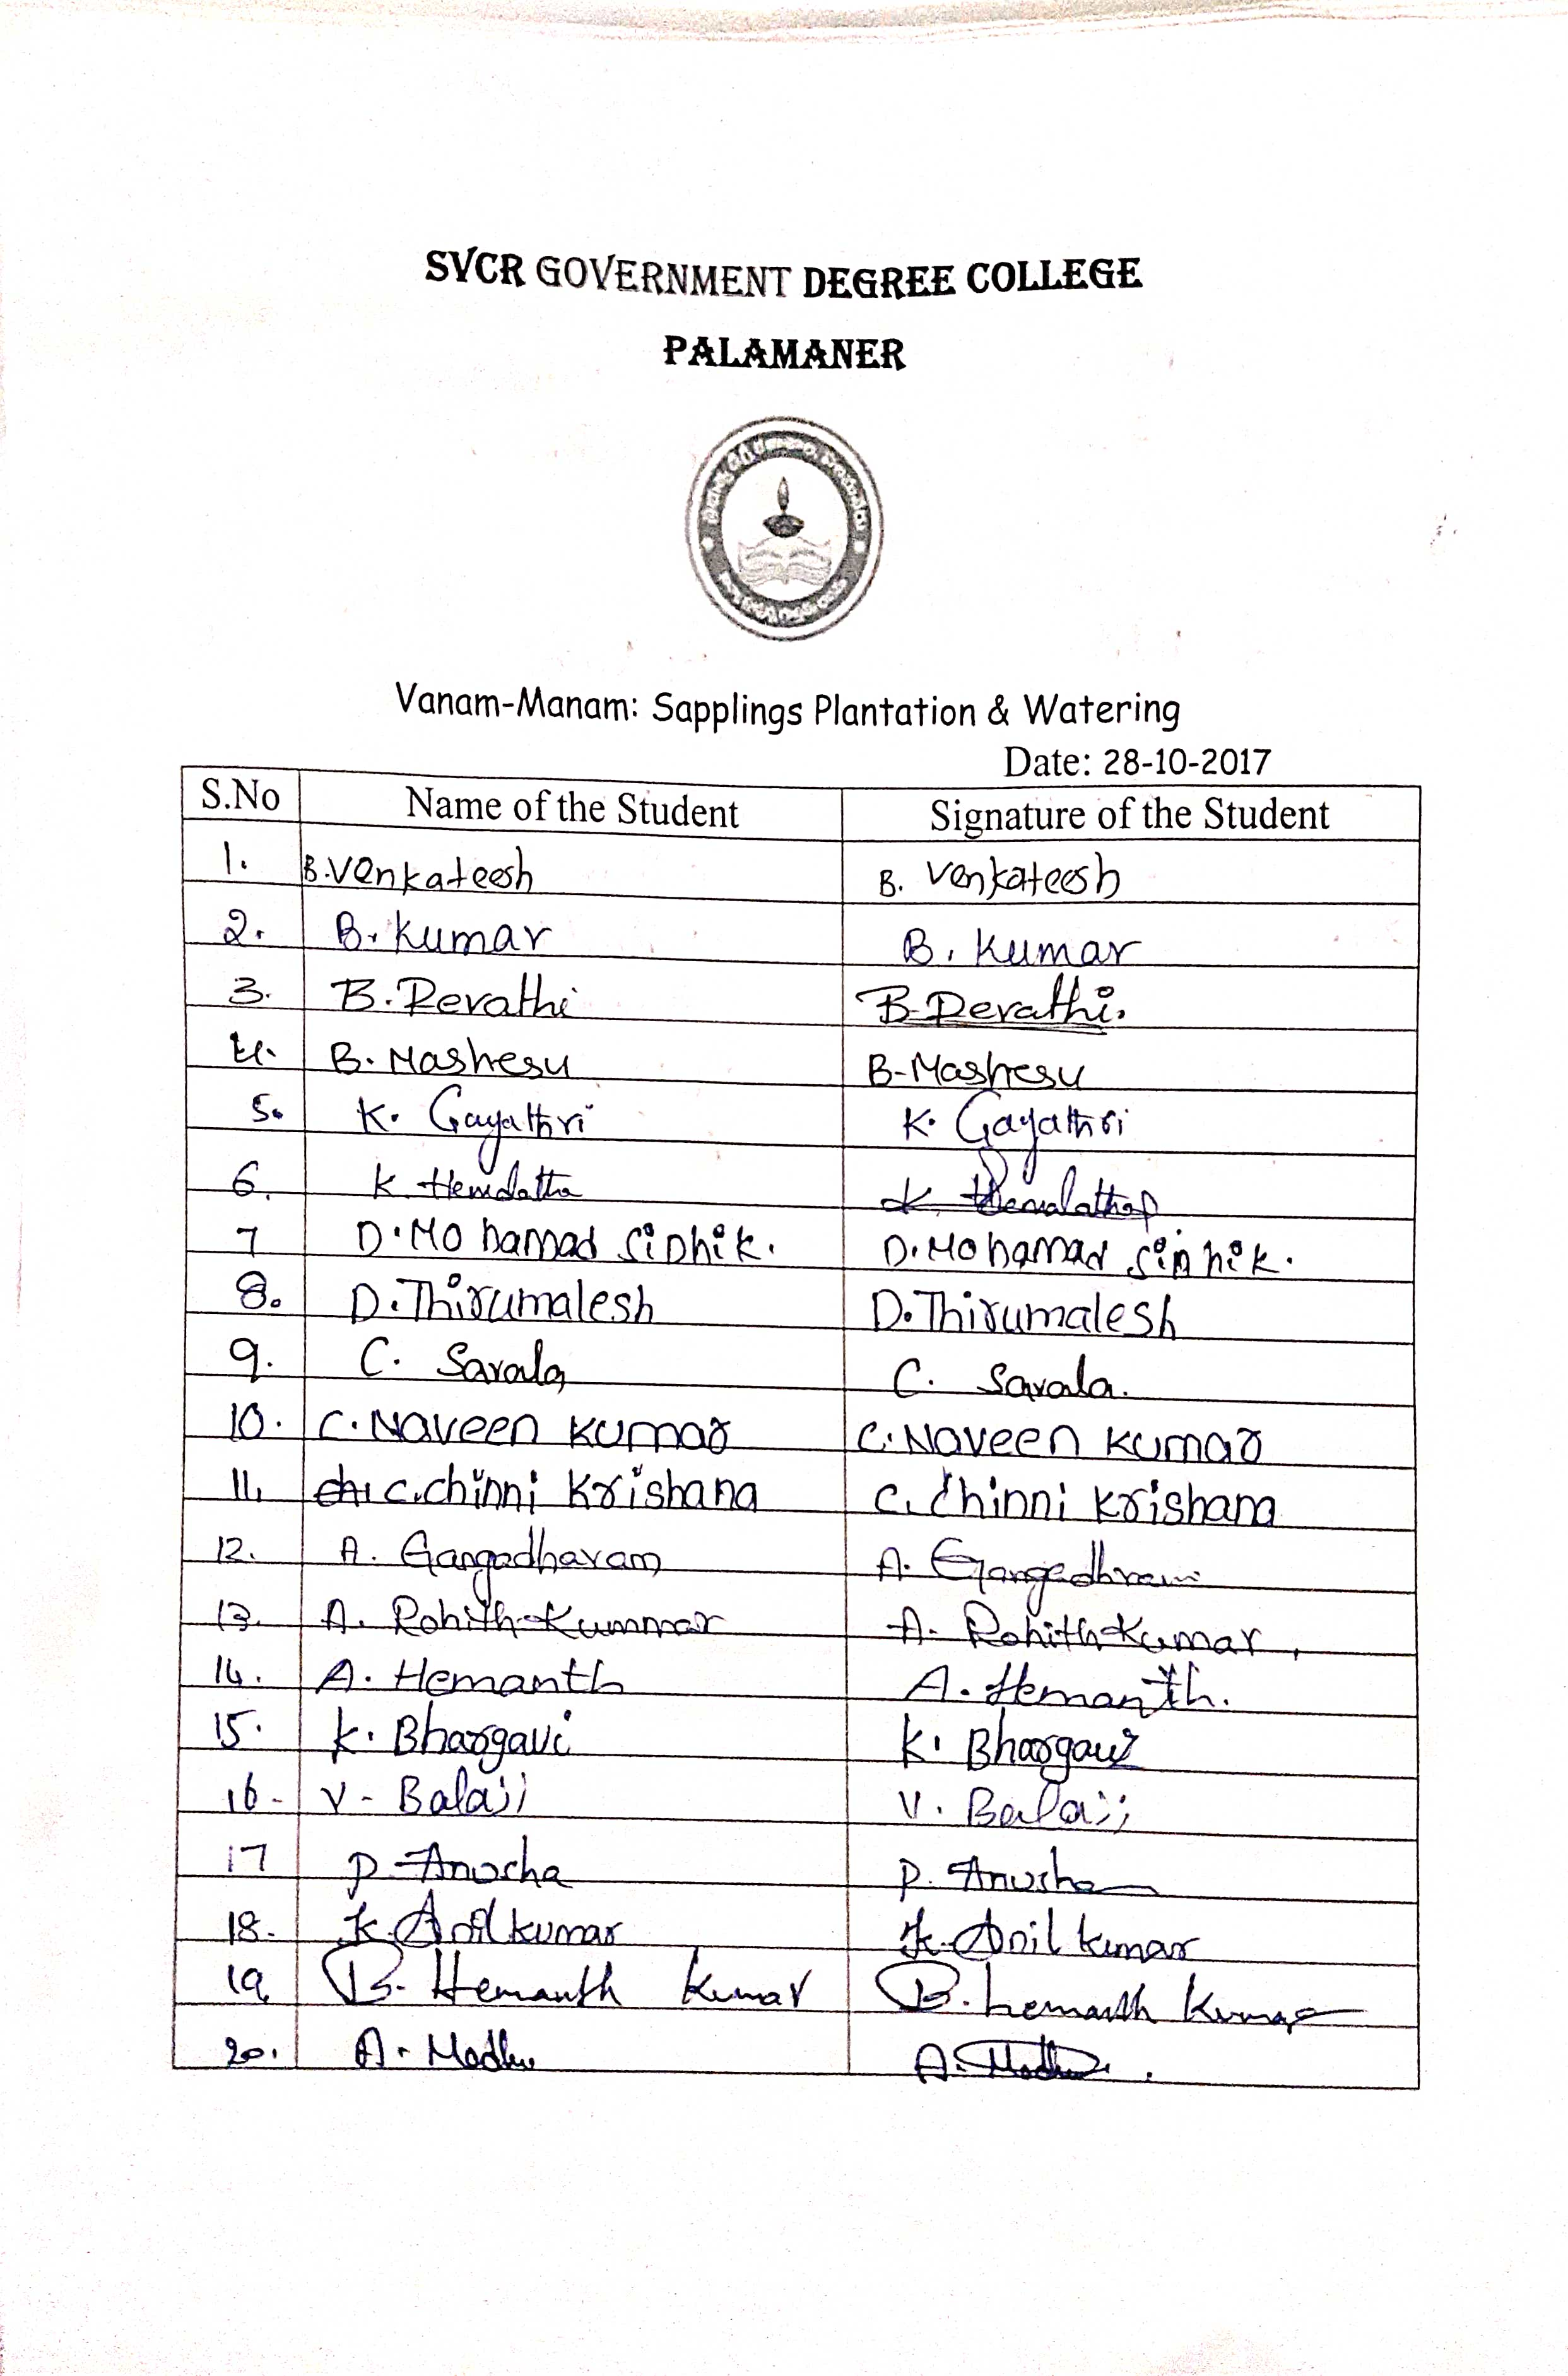 SVCR GOVERNMENT DEGREE COLLEGE
PALAMANER
Vanam-Manam: Sapplings Plantation & Watering
Date: 28-10-2017
S.No Name of the Student Signature of the Student
1. B.Venkateesh B. Venkateesh
2. B. Kumar B. Kumar
3. B. Revathi B. Revathi.
4. B. Mashesu B-Mashesu
5. K. Gayathri K. Gayathri
6. K. Hemalatha K. Hemalatha
7 D.Mohamad Sidhik. D.Mohamad Sidhik.
8. D.Thirumalesh D.Thirumalesh
9. C. Sarala C. Sarala.
10. C.Naveen Kumar C.Naveen Kumar
11. C.chinni Krishana C. chinni Krishana
12. A. Gangadharam A.
13. A. Rohith Kummar A. Rohith Kumar,
14. A. Hemanth A. Hemanth.
15. K. Bhargavi K. Bhargavi
16- V- Balaji V. Balaji
17 P. Anusha P. Anusha
18. K. Anil kumar K. Anil kumar
19. B. Hemanth Kumar B. hemanth Kumar
20. A. Madhu A. Madhu.